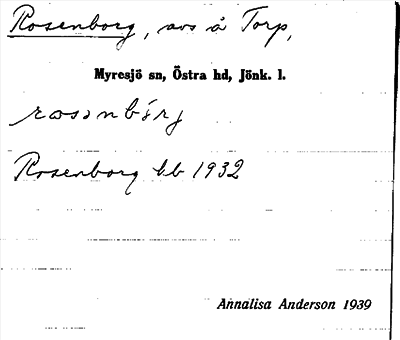 Rosenborg, avs å Torp,
Myresjö sn, Östra hd, Jönk. l.
Rosenborg hb 1932
Annalisa Anderson 1939